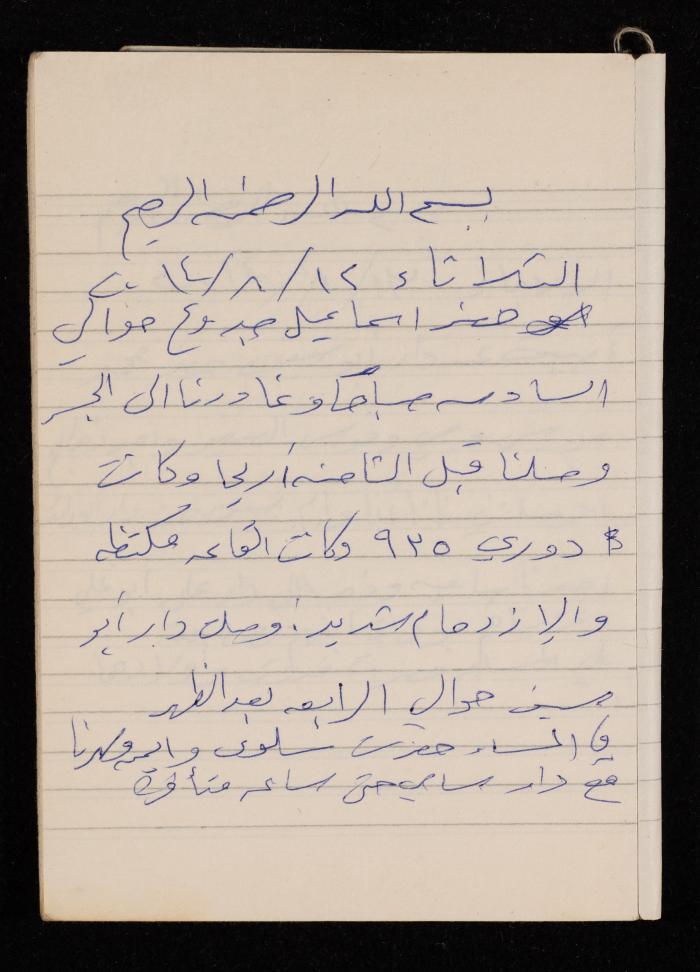 بسم الله الرحمن الرحيم
الثلاثاء ١٢/٨/١٤
حضر اسماعيل جدوع حوالي
السادسه صباحًا وغادرنا الى الجسر
وصلنا قبل الثامنه أريحا وكانت
دوري ٩٣٥ وكانت القاعه مكتظه
والإزدحام شديد. وصل دار أبو
حوالي الرابعه بعد الظهر
في المساء حضرت سلوى وسهرنا
مع دار سامي حتى ساعه متأخرة